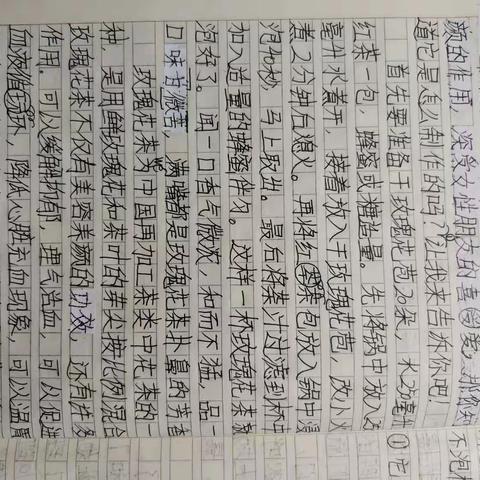 颜的作用，深受女性朋友的喜爱，那你知
道它是怎么制作的吗？让我来告诉你吧！
首先要准备干玫瑰花苞20朵，水250毫升
红茶一包，蜂蜜或糖适量。先将锅中放入
毫升水煮开，接着放入干玫瑰花苞，改小火
煮2分钟后熄火。再将红茶包放入锅中浸
泡40秒，马上取出。最后将茶汁过滤到杯中
加入适量的蜂蜜伴匀。这样一杯玫瑰花茶就
泡好了。闻一口香气微，和而不猛，品一
口味甘微苦，满嘴都是玫瑰花茶的香
玫瑰花茶为中国再加工茶类中花茶的一
种，是用鲜玫瑰花和茶叶的芽尖按比例混合
玫瑰花茶不仅有美容养颜的功效，还有许多
作用。可以缓解抑郁，理气活血，可以促进
血液循环，降低心脏充血现象。可以温胃
不泡
①它